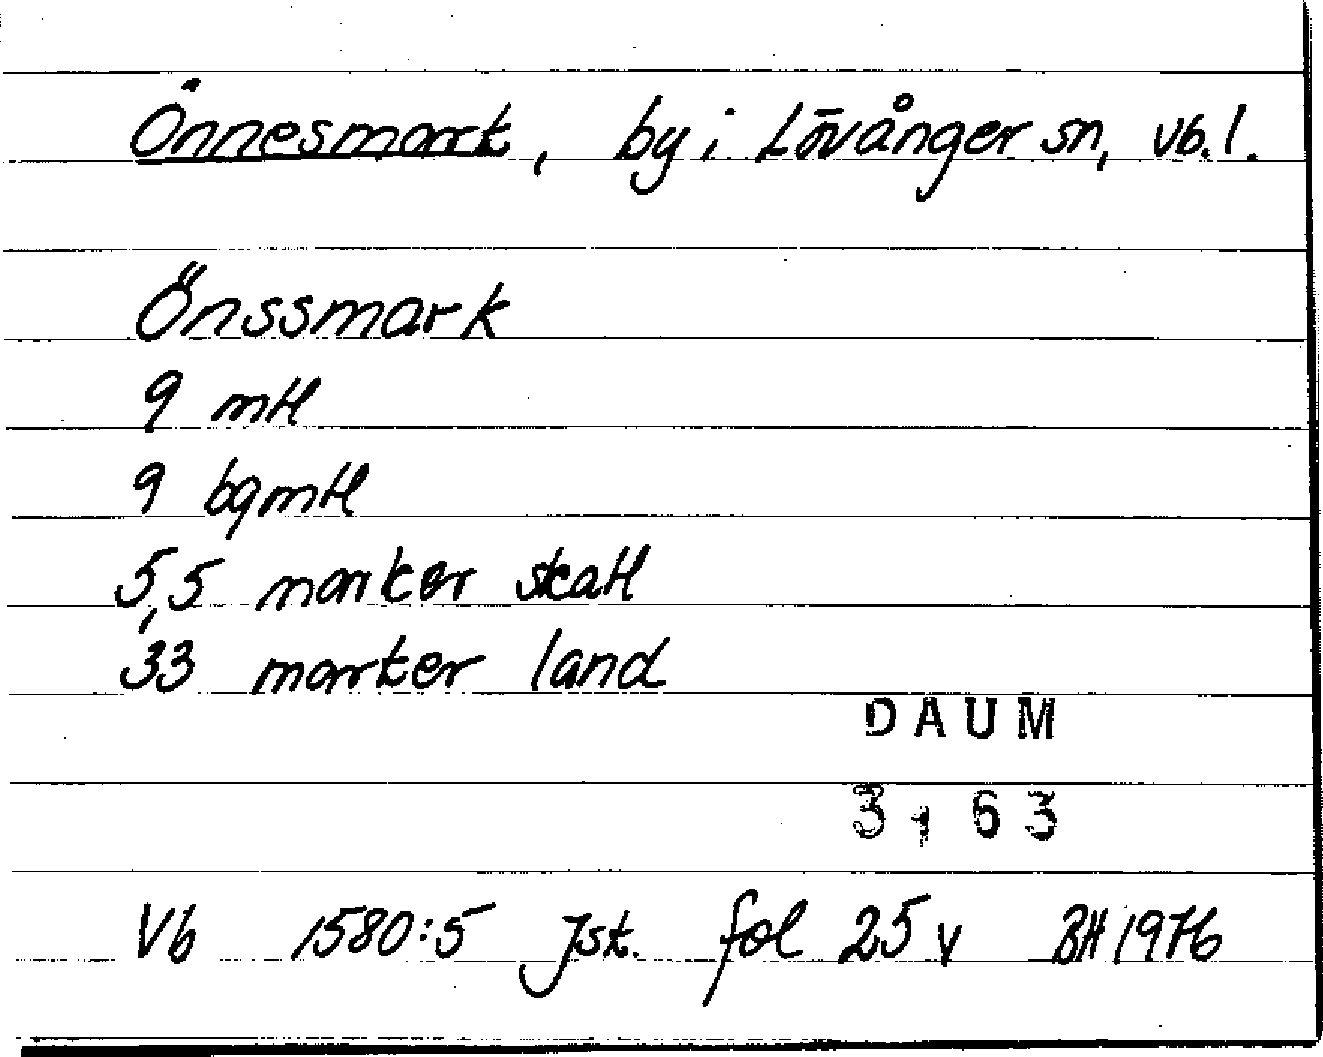 Önnesmark, by i Lövånger sn, Vb. l.
Önssmark
9 mtl
9 bgmtl
5,5 marker skatt
33 marker land
DAUM
3163
Vb 1580:5 Jst. fol 25 v BH 1976